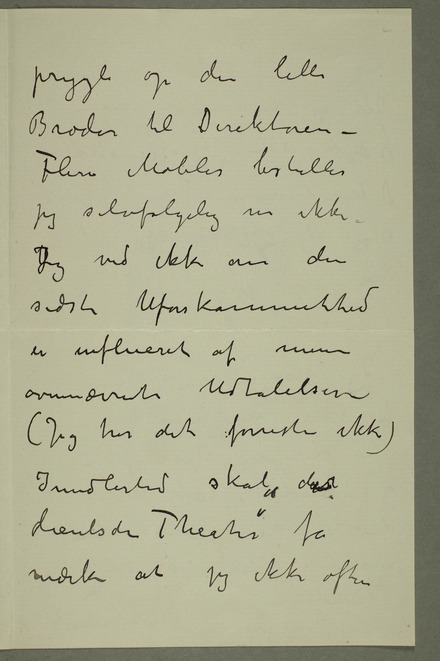 prygle op den lille
Broder til Direktøren –
Flere Møbler bestilles
jeg selvfølgelig nu ikke.
Jeg ved ikke om den
sidste Uforskammethed
er influeret af mine
ovennævnte Udtalelser
(Jeg tror det forresten ikke)
Imidlertid skal „det
„Theater“ få
mærke at jeg ikke ofte